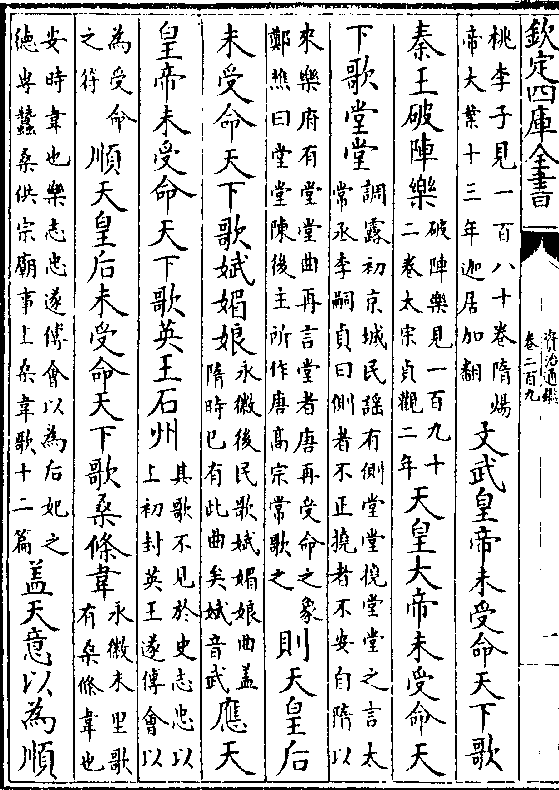 欽定四庫全書
資治通鑑
卷二百九
桃李子見一百八十卷隋煬
帝大業十三年迦居加翻
文武皇帝未受命天下歌
秦王破陣樂
破陣樂見一百九十
二卷太宗貞觀二年
天皇大帝未受命天
下歌堂堂
調露初京城民謡有側堂堂撓堂堂之言太
常丞李嗣貞曰側者不正撓者不安自隋以
來樂府有堂堂曲再言堂者唐再受命之象
鄭樵曰堂堂陳後主所作唐高宗常歌之
則天皇后
未受命天下歌娬媚娘
永徽後民歌娬媚娘曲盖
隋時已有此曲矣娬音武
應天
皇帝未受命天下歌英王石州
其歌不見於史志忠以
上初封英王遂傅會以
為受命
之符
順天皇后未受命天下歌桑條韋
永徽末里歌
有桑條韋也
安時韋也樂志忠遂傅會以為后妃之
德専蠶桑供宗廟事上桑韋歌十二篇
盖天意以為順